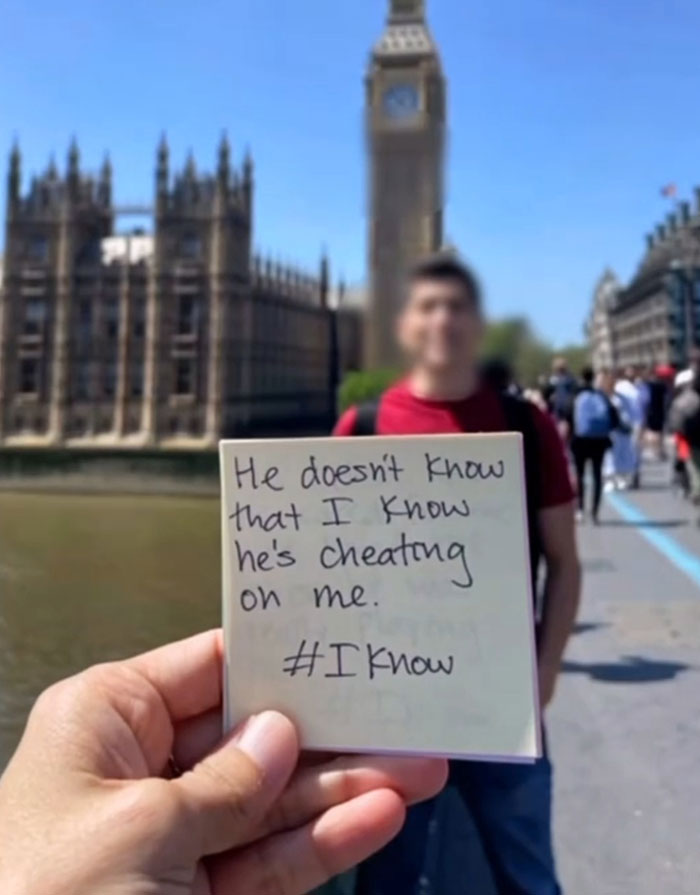 He doesn't know
that I know
he's cheating
on me.
#IKnow